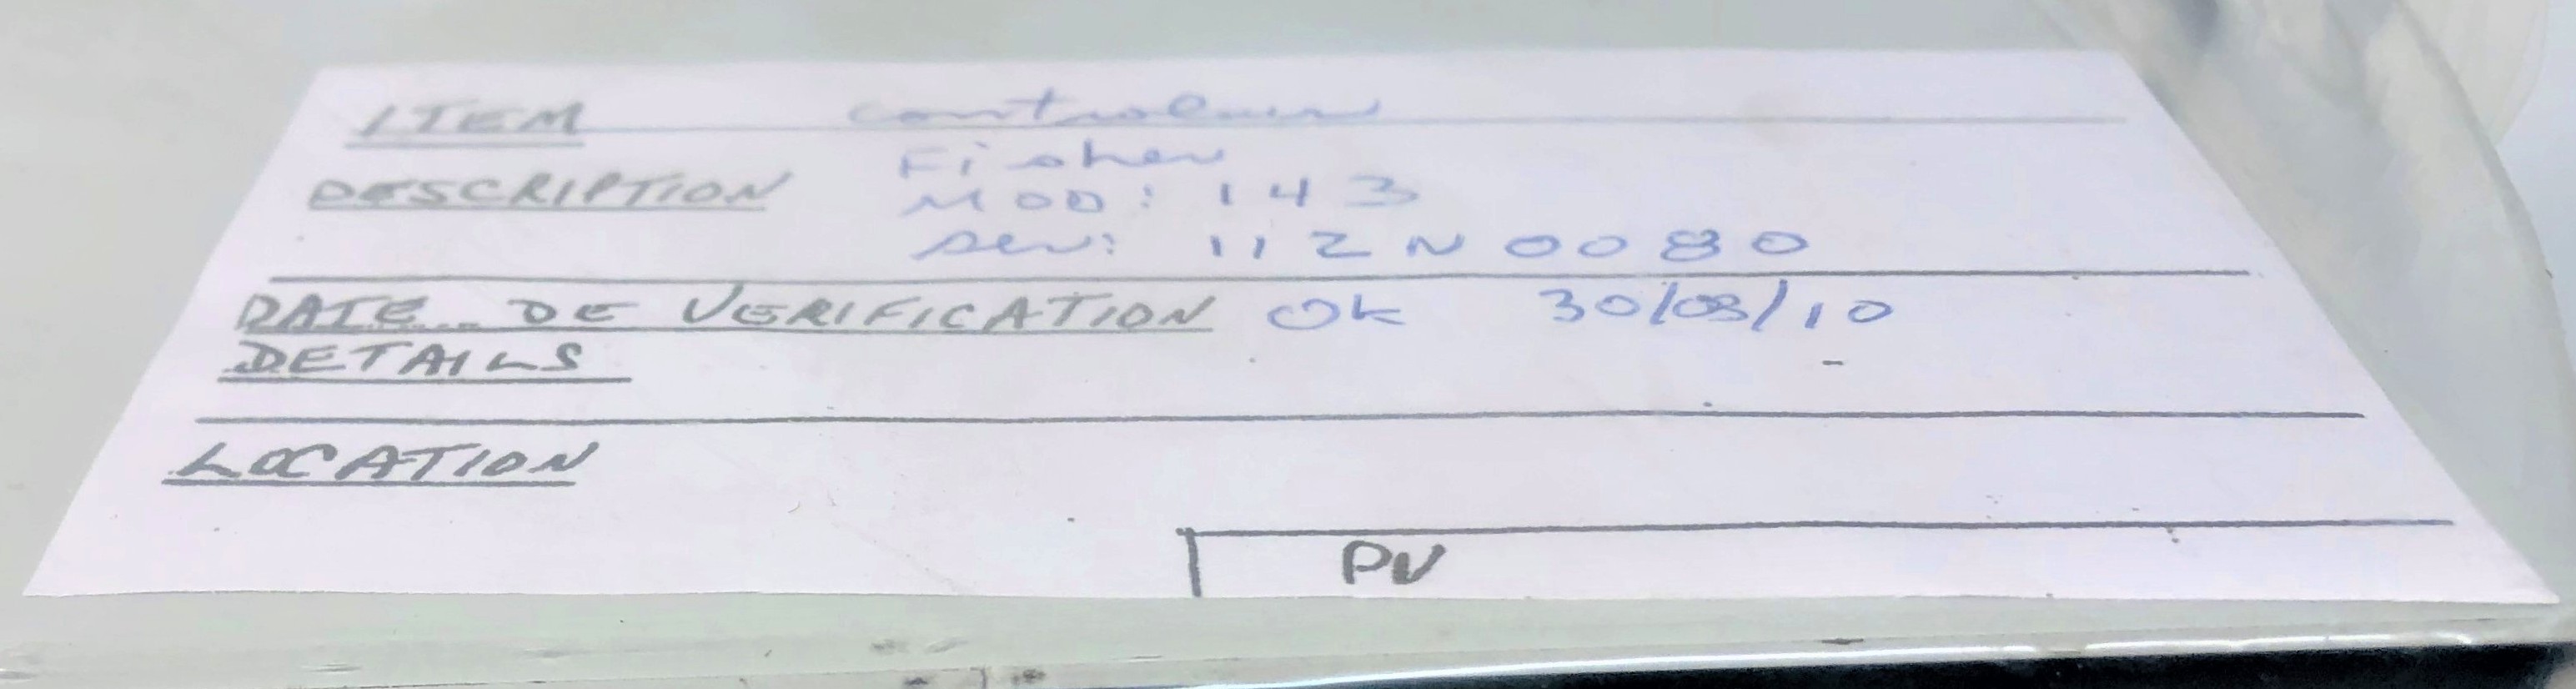 ITEM controleur
DESCRIPTION Fisher
MOD: 143
ser: 112N0080
DATE DE VERIFICATION OK 30/08/10
DETAILS
LOCATION
PV